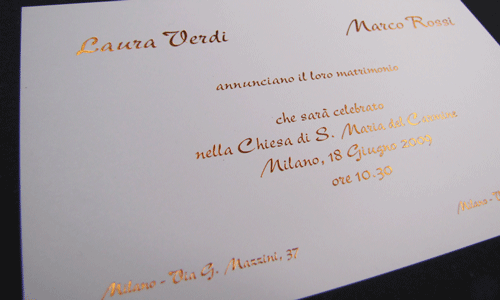 Laura Verdi
Marco Rossi
annunciano il loro matrimonio
che sarà celebrato
nella Chiesa di S. Maria del Carmine
Milano, 18 Giugno 2009
ore 10.30
Milano - Via G. Mazzini, 37